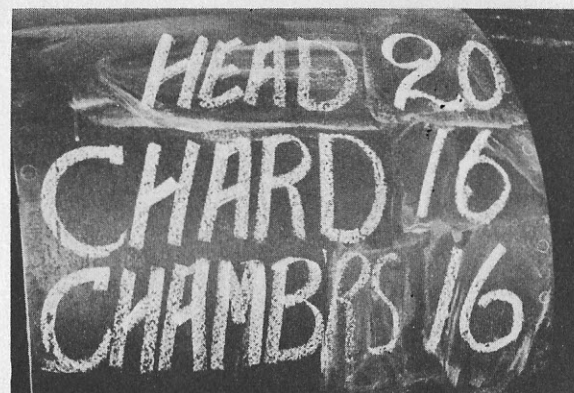 HEAD 20
CHARD 16
CHAMBRS 16